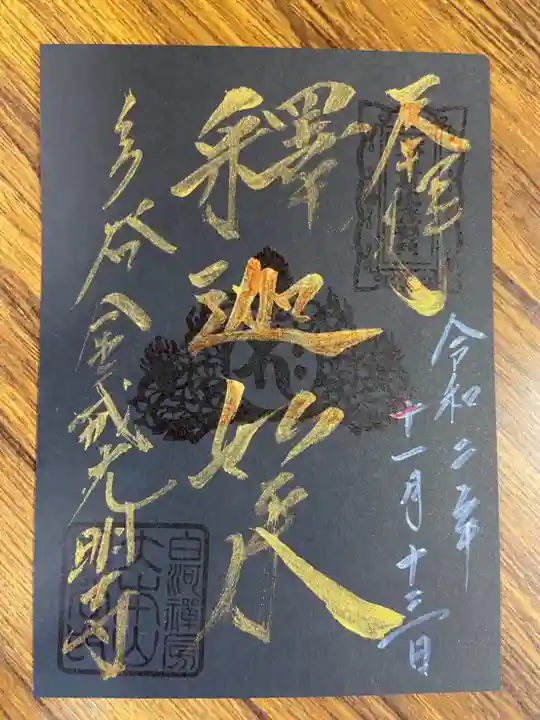 奉拝
令和二年
十一月十三日
釋迦如来
金戒光明寺
白河禅房